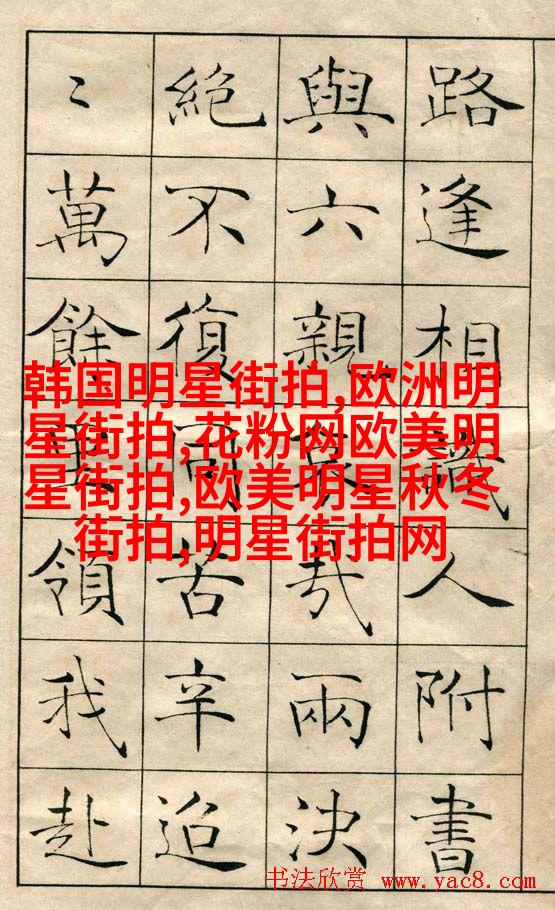 路逢相識人附書
與六親哀哉兩決
絕不復同苦辛迢
〻萬餘里領我赴
韩国明星街拍,欧洲明
星街拍,花粉网欧美明
星街拍,欧美明星秋冬
街拍,明星街拍网
书法欣赏 www.yac8.com